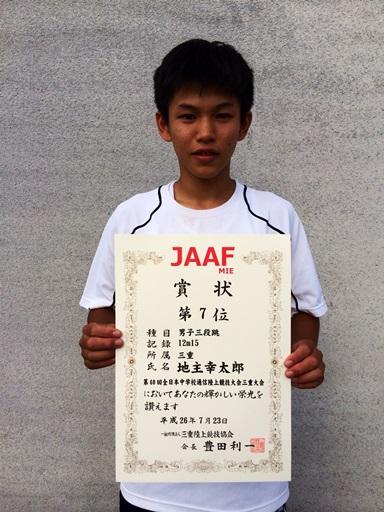 JAAF
MIE
賞状
第7位
種目 男子三段跳
記録 12m15
所属 三重
氏名 地主幸太郎
第60回全日本中学校通信陸上競技大会三重大会
においてあなたの輝かしい栄光を
讃えます
平成26年7月23日
一般財団法人 三重陸上競技協会
会長 豊田利一